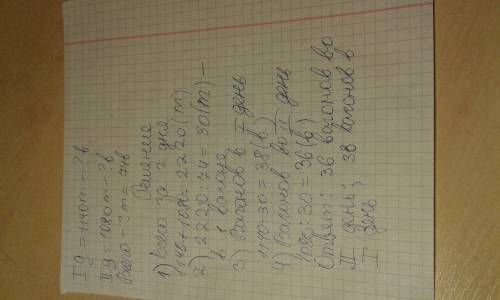 I д = 1140 т - ? в
II д = 1080 т - ? в
Всего - ? т = 74 в
Решение
1) Всего за 2 дня
1140+1080=2220 (т)
2) 2220:74=30 (т) -
в 1 вагоне
3) Вагонов в I день
1140:30=38 (в)
4) Вагонов во II день
1080:30=36 (в)
Ответ: 36 вагонов во
II день; 38 вагонов в
I день